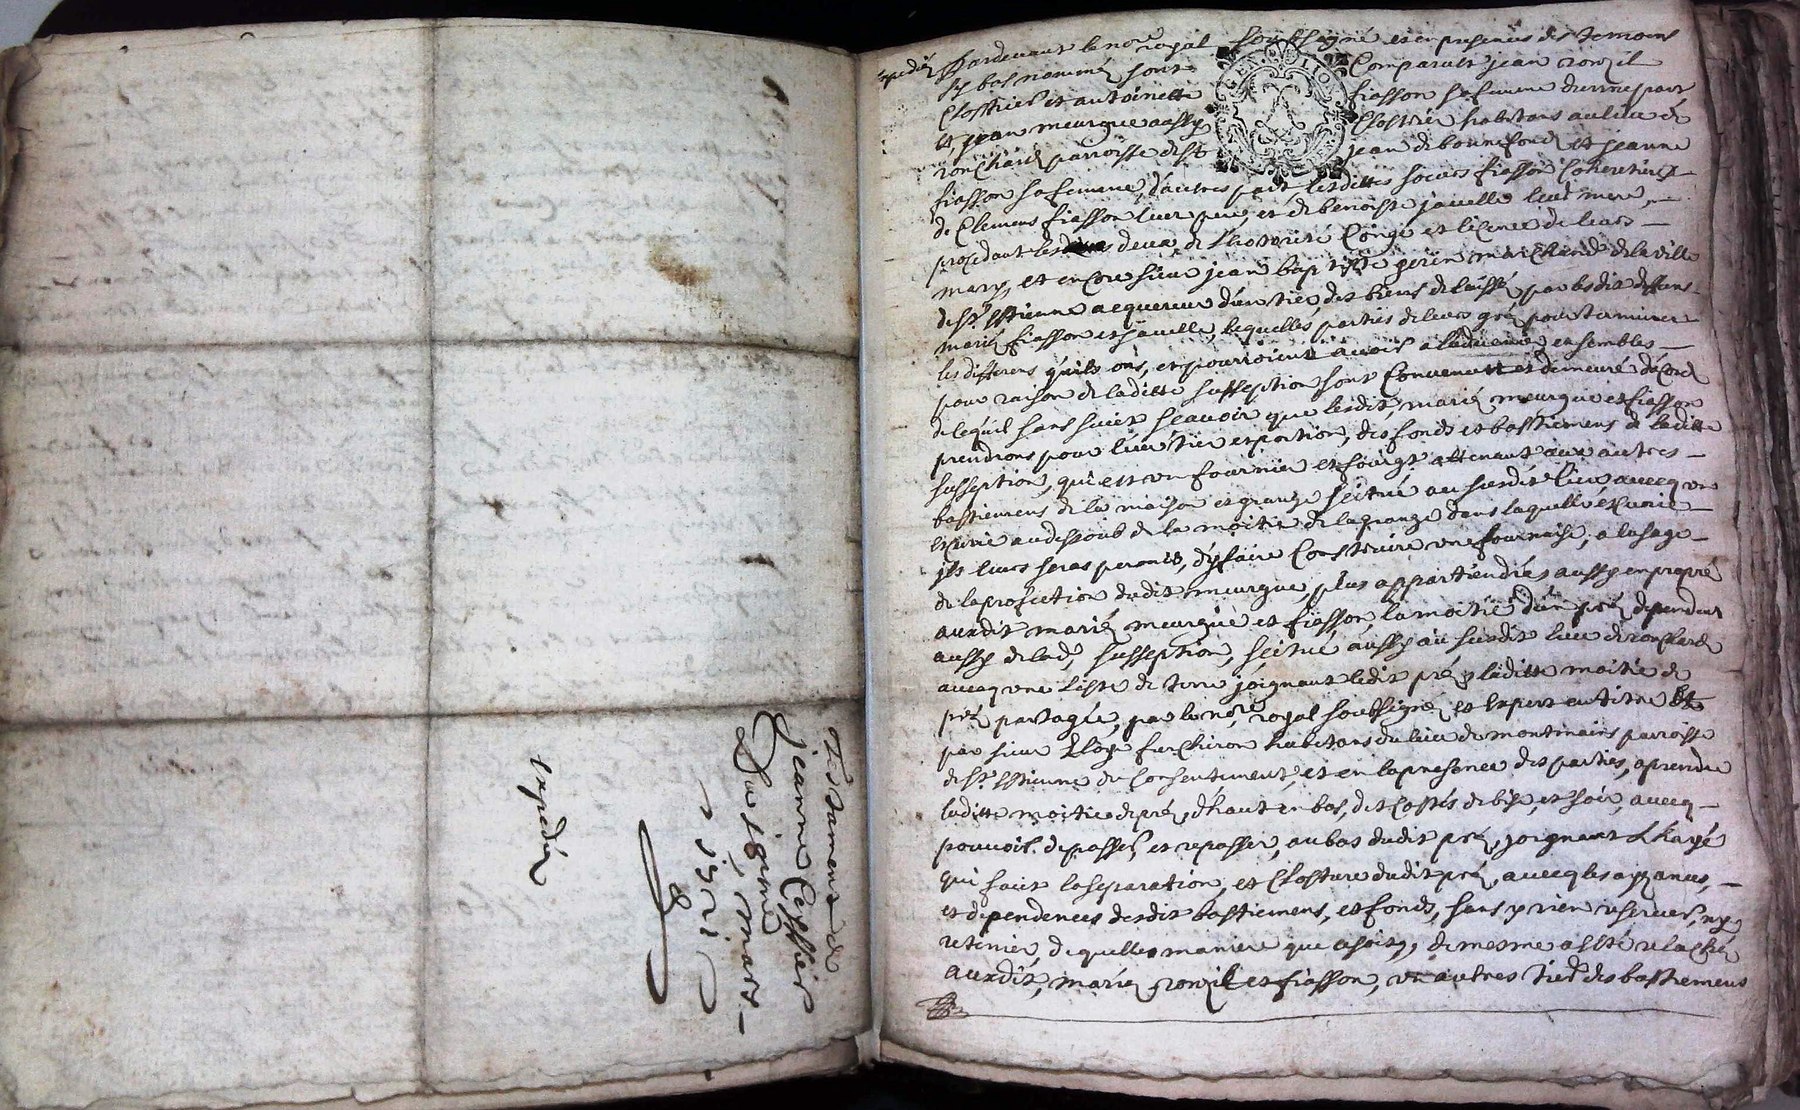 Testament de
jeanne Teyssier
Du 19me mars
1721
expedié
expedié
Pardevant le nore royal soubsigné et en presences des temoins
sy bas nommés sont Comparust jean rouzil
Clostrier et antoinette fiasson sa femme d'une part
et jean meurgue aussy Clostrier habitans au lieu de
ronchard parroisse de St jean de bonnefond et jeanne
fiasson sa femme, d'autres part lesdittes soeurs fiasson Coheretieres
de Clemens fiasson leur pere, et de benoiste javelle leur mere
procedant les deux de l'hotorité Congé et licence de leurs
marys, et encore sieur jean baptiste perrin marchand de la ville
de St Estienne acquereur d'un tier des biens delaissés par lesdit deffuns
mariés fiasson et javelle, lequelles parties de leurs gré pour terminer
les differens qu'ils ons, et pourroient avoir a l'advenir ensembles
pour raison de laditte susseption sont Convenutt et demeuré d'acord
de lequil sans suict scavoir que lesdit mariés meurgue et fiasson
prendrons pour leur tier et portion, des fonds et bastimens de laditte
susseption, qui est un fournier et fourgt attenant aux autres
bastiemens de la maison et grange scitué au susdit lieu, avecq une
escurie au dessoub de la moitié de la grange dans laquelle escurie
jls leurs seras permis, d'y faire Construire une fournaise, a l'usage
de la profection dudit meurgue, plus appartiendras aussy en propre
auxdit mariés meurgue et fiasson, la moitié d'un pré, dependent
aussy de lad. susseption, scitué aussy au susdit lieu de ronchard
avecq une liste de terre joignant ledit pré, laditte moitié de
pré partagée, par le nore royal soubsigné, et expert en titre et
par sieur Eloye furchiron habitans du lieu de montmains parroisse
de St Estienne du Consentement, et en la presence des parties, a prendre
laditte moitié de pré, d'haut en bas, des Costés de bise, et soir, avecq
pouvoir de passer, et repasser, au bas dudit pré, joignant l'haye
qui fait la separation, et Closture dudit pré, avecq les ayzances,
et dependences desdit bastiemens, et fonds, sans y rien reserver, ny
retenir, de quelles maniere que ce soit, de mesme a esté relaché
auxdit, mariés rouzil et fiasson, un autres tier des bastiemens